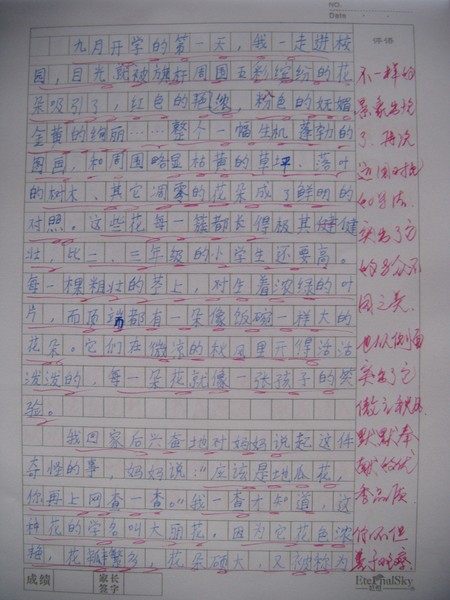 NO.
Date
评语
九月开学的第一天，我一走进校
园，目光就被旗杆周围五彩缤纷的花
朵吸引了，红色的艳，粉色的妖娆
金黄的绚丽……整个一幅生机蓬勃的
图画，和周围略显枯黄的草坪、落叶
的树木、其它凋零的花朵成了鲜明的
对照。这些花每一簇都长得极其健
壮，比一、二年级的小学生还要高。
每一棵粗壮的茎上，对生着浓绿的叶
片，而顶端都有一朵像饭碗一样大的
花朵。它们在微凉的秋风里开得活活
泼泼的，每一朵花就像一张孩子的笑
验。
我回家后兴奋地对妈妈说起这件
奇怪的事，妈妈说："应该是地瓜花，
你再上网查一查。"我一查才知道，这
种花的学名叫大丽花。因为它花色浓
艳，花瓣繁多，花朵硕大，又称为
不一样的
景象
了
突出了
的与众不
同之美.
也从侧面
突出了它
默默奉
献的优
秀品质
你不但
善于观察
成绩
家长
签字
EternalSky